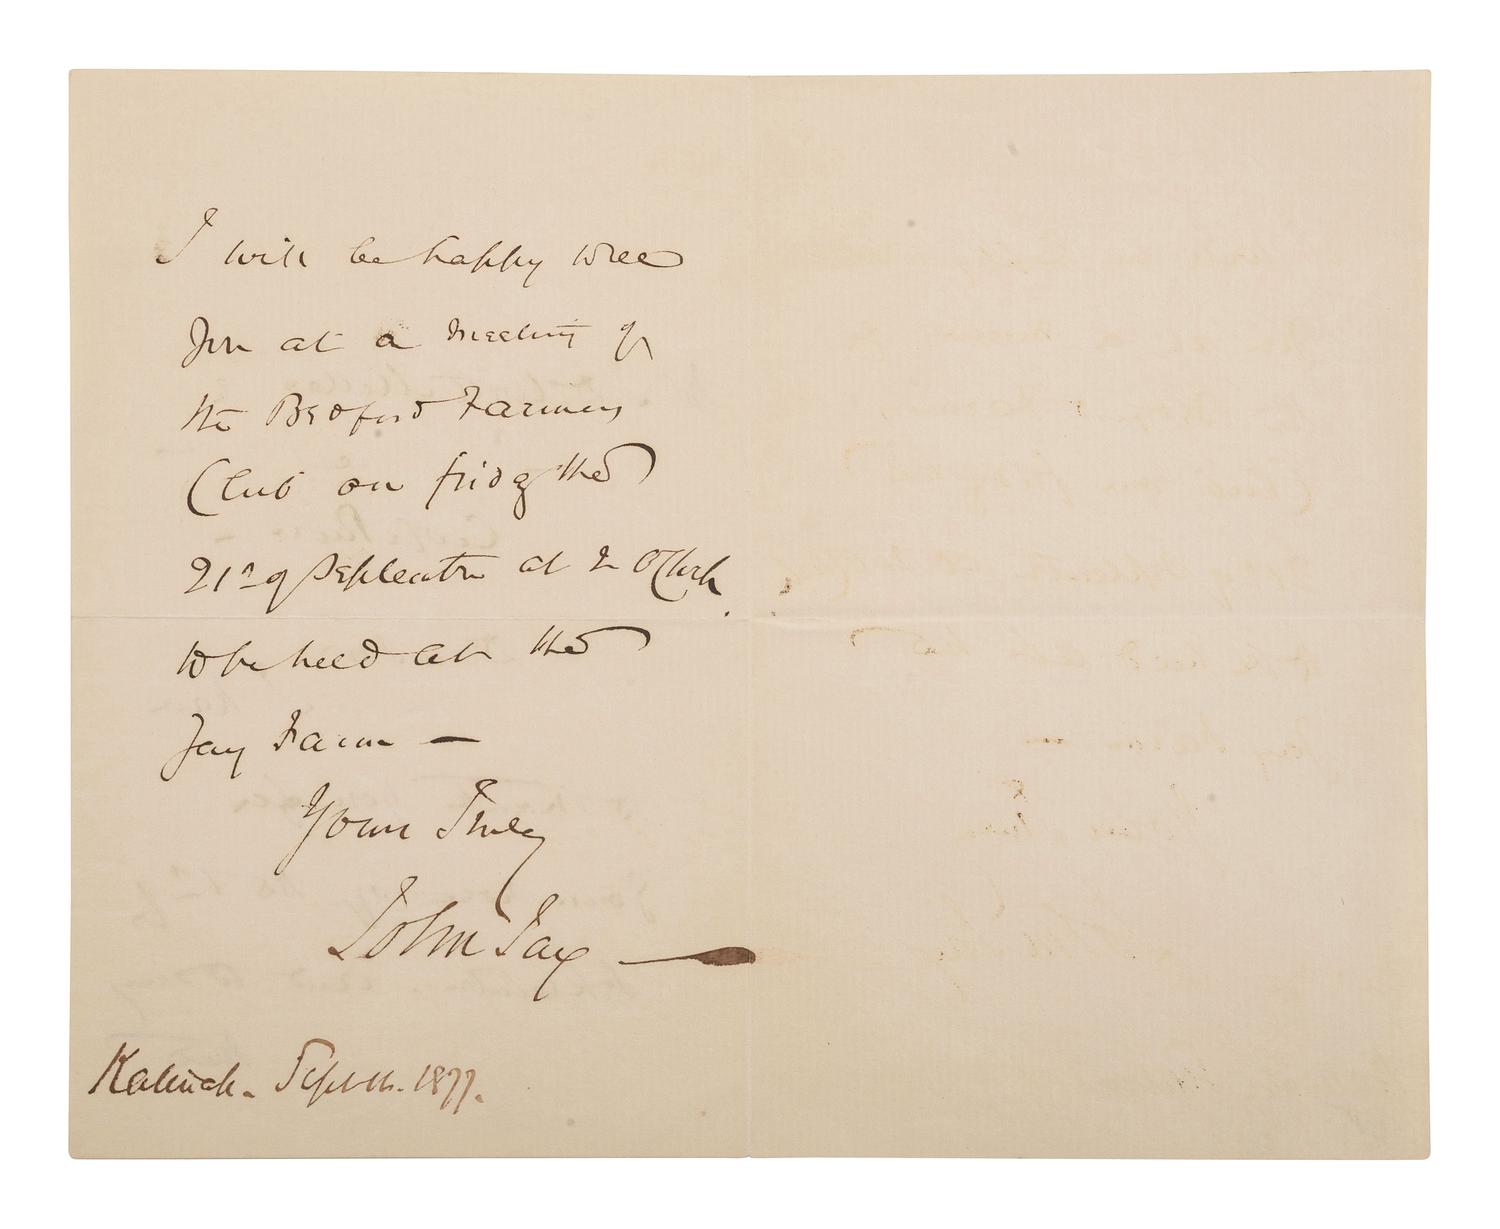 I will be happy to see
you at a meeting of
the Bedford Farmers
Club on friday the
21st of September at 2 O'Clock.
to be held at the
Jay Farm —
Yours Truly
John Jay —
Katonah. Sept 1877.